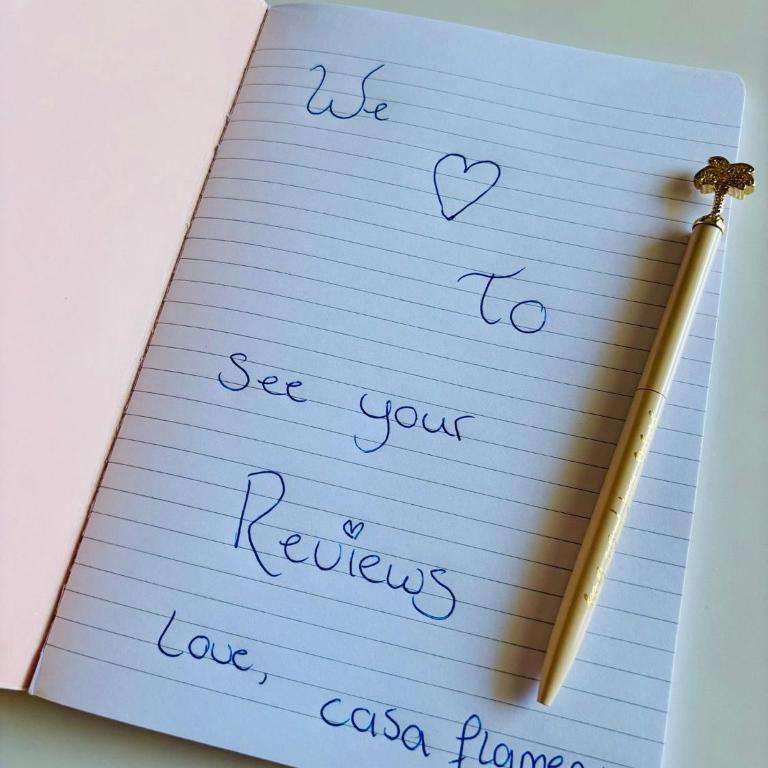 We
♡
To
see your
Reviews
Love,
casa